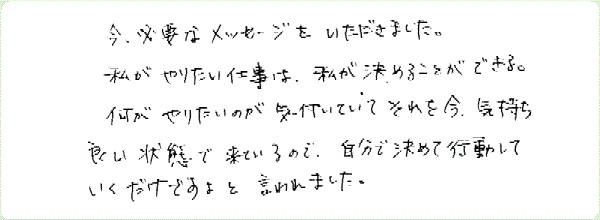 今、必要なメッセージをいただきました。
私がやりたい仕事は、私が決めることができる。
何がやりたいのか気付いていてそれを今、気持ち
良い状態で来ているので、自分で決めて行動して
いくだけですよと言われました。